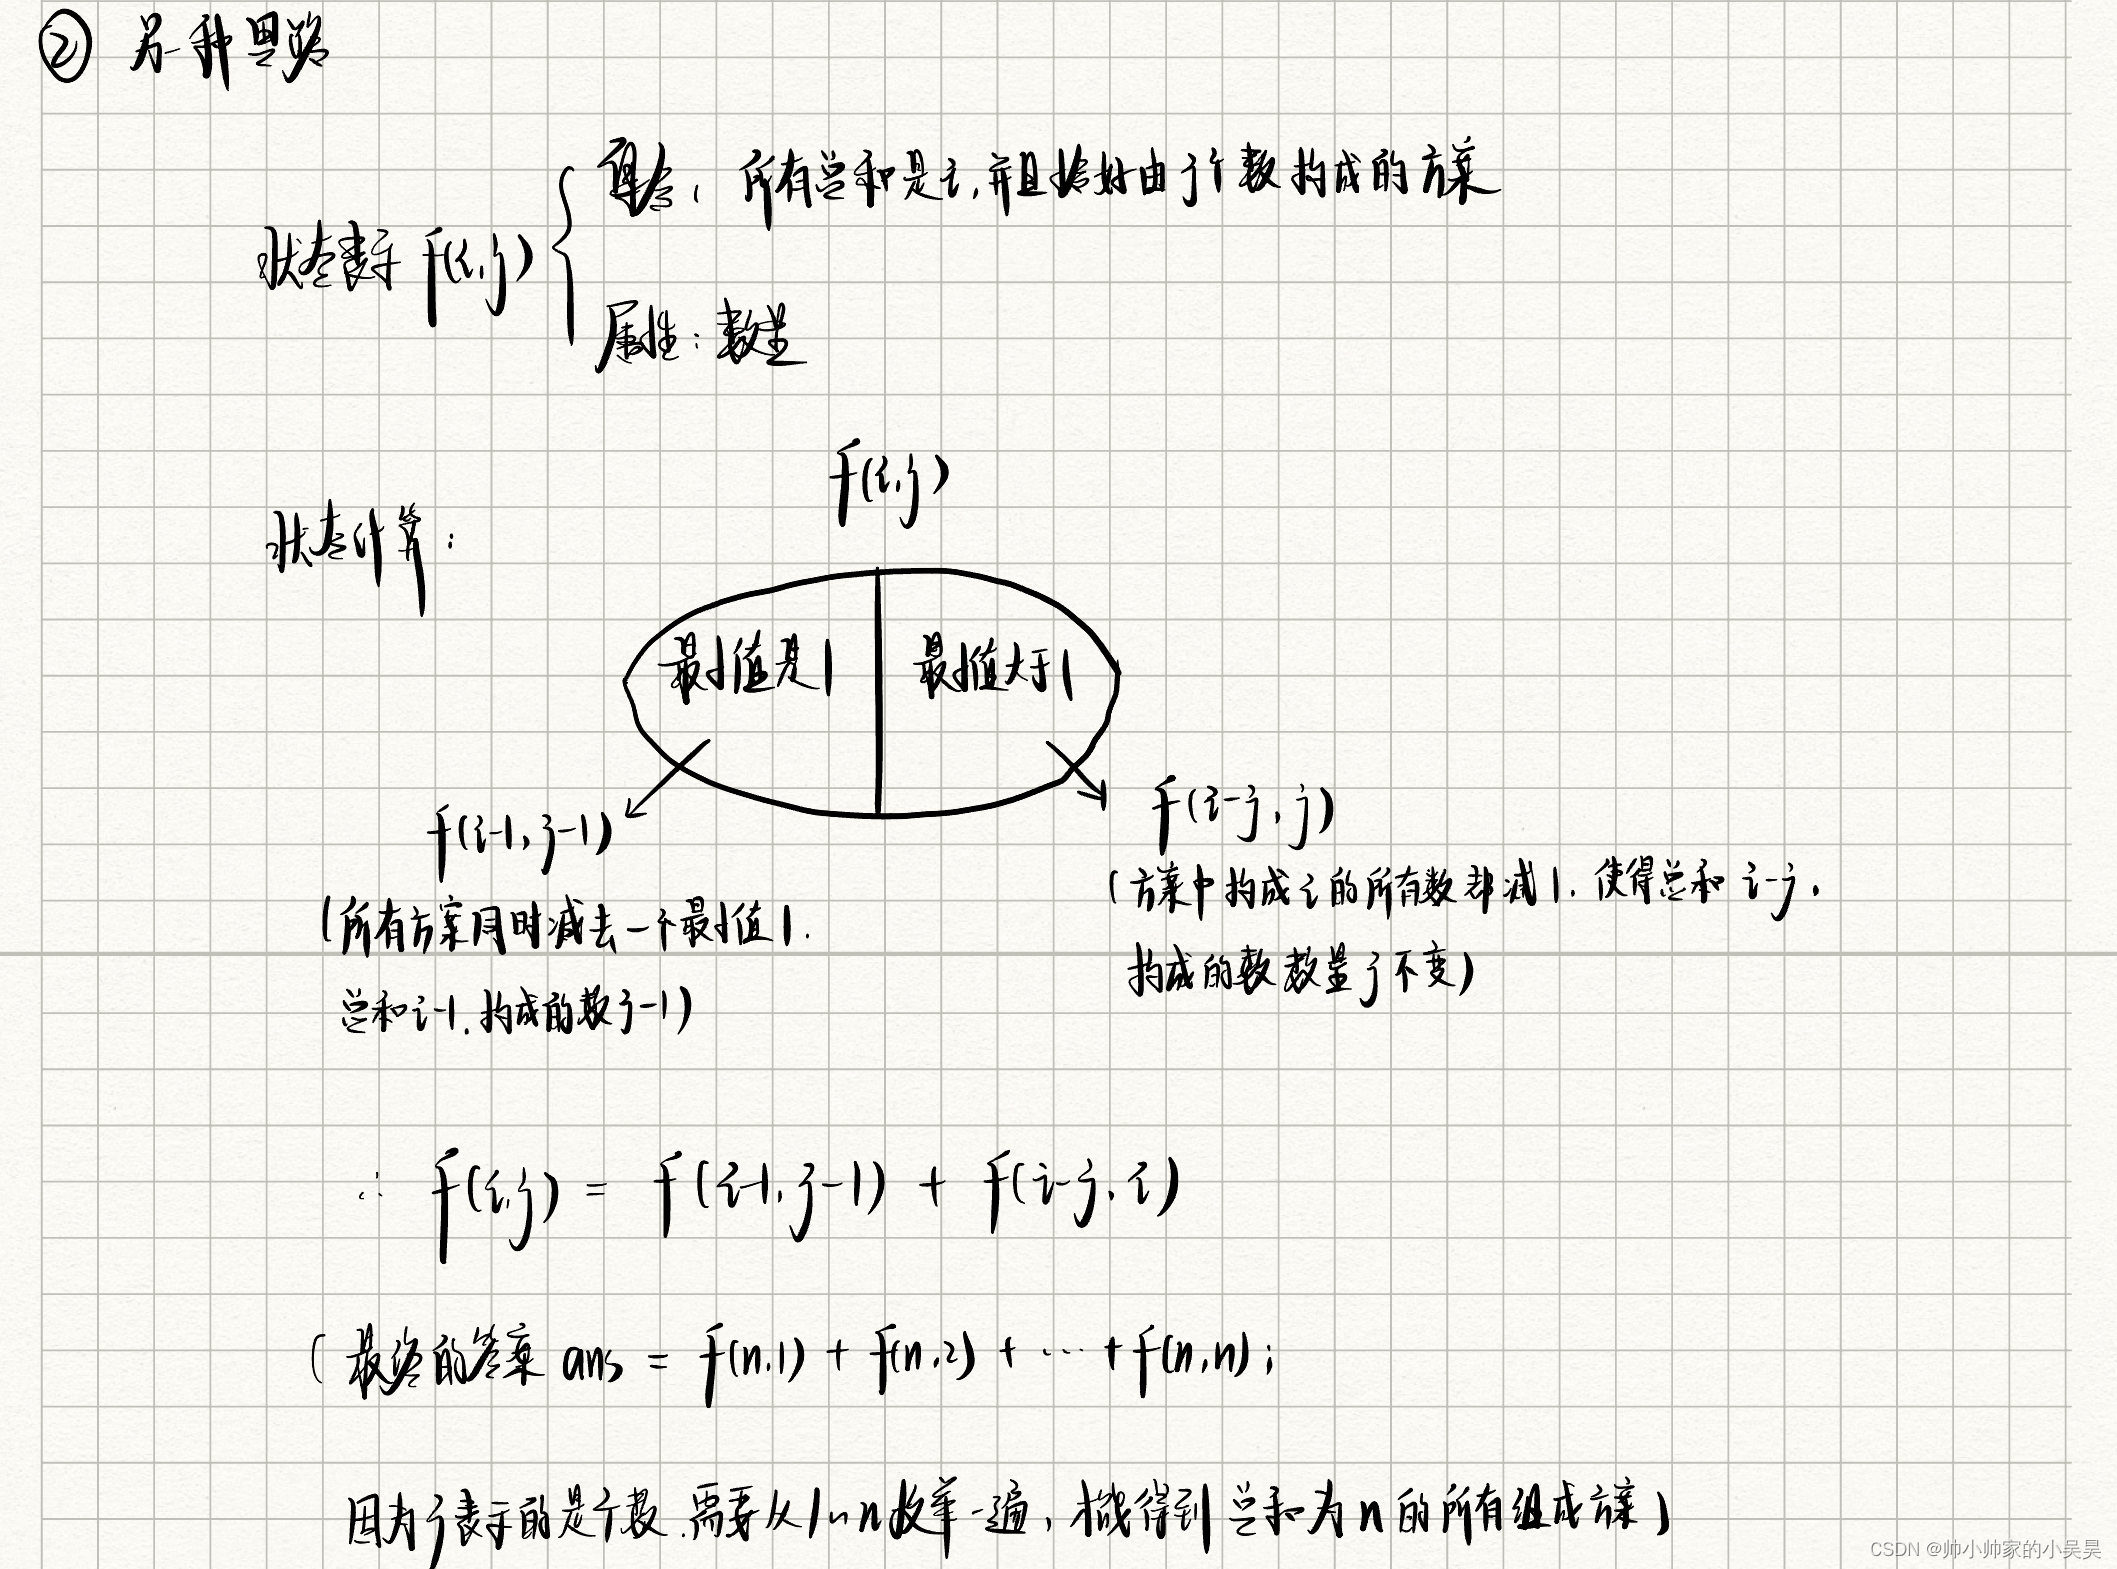 ② 另一种思路
集合：所有总和是i,并且恰好由j个数构成的方案
状态表示 f(i,j)
属性：数量
f(i,j)
状态计算：
最小值是1 最小值大于1
f(i-1, j-1)
f(i-j, j)
(所有方案同时减去一个最小值1.
总和i-1, 构成的数j-1)
(方案中构成i的所有数都减1. 使得总和 i-j,
构成的数数量j不变)
∴ f(i,j) = f(i-1, j-1) + f(i-j, i)
(最终的答案 ans = f(n,1) + f(n,2) + … + f(n,n);
因为j表示的是个数,需要从1~n枚举一遍, 才能得到总和为n的所有组成方案)
CSDN @帅小帅家的小吴昊